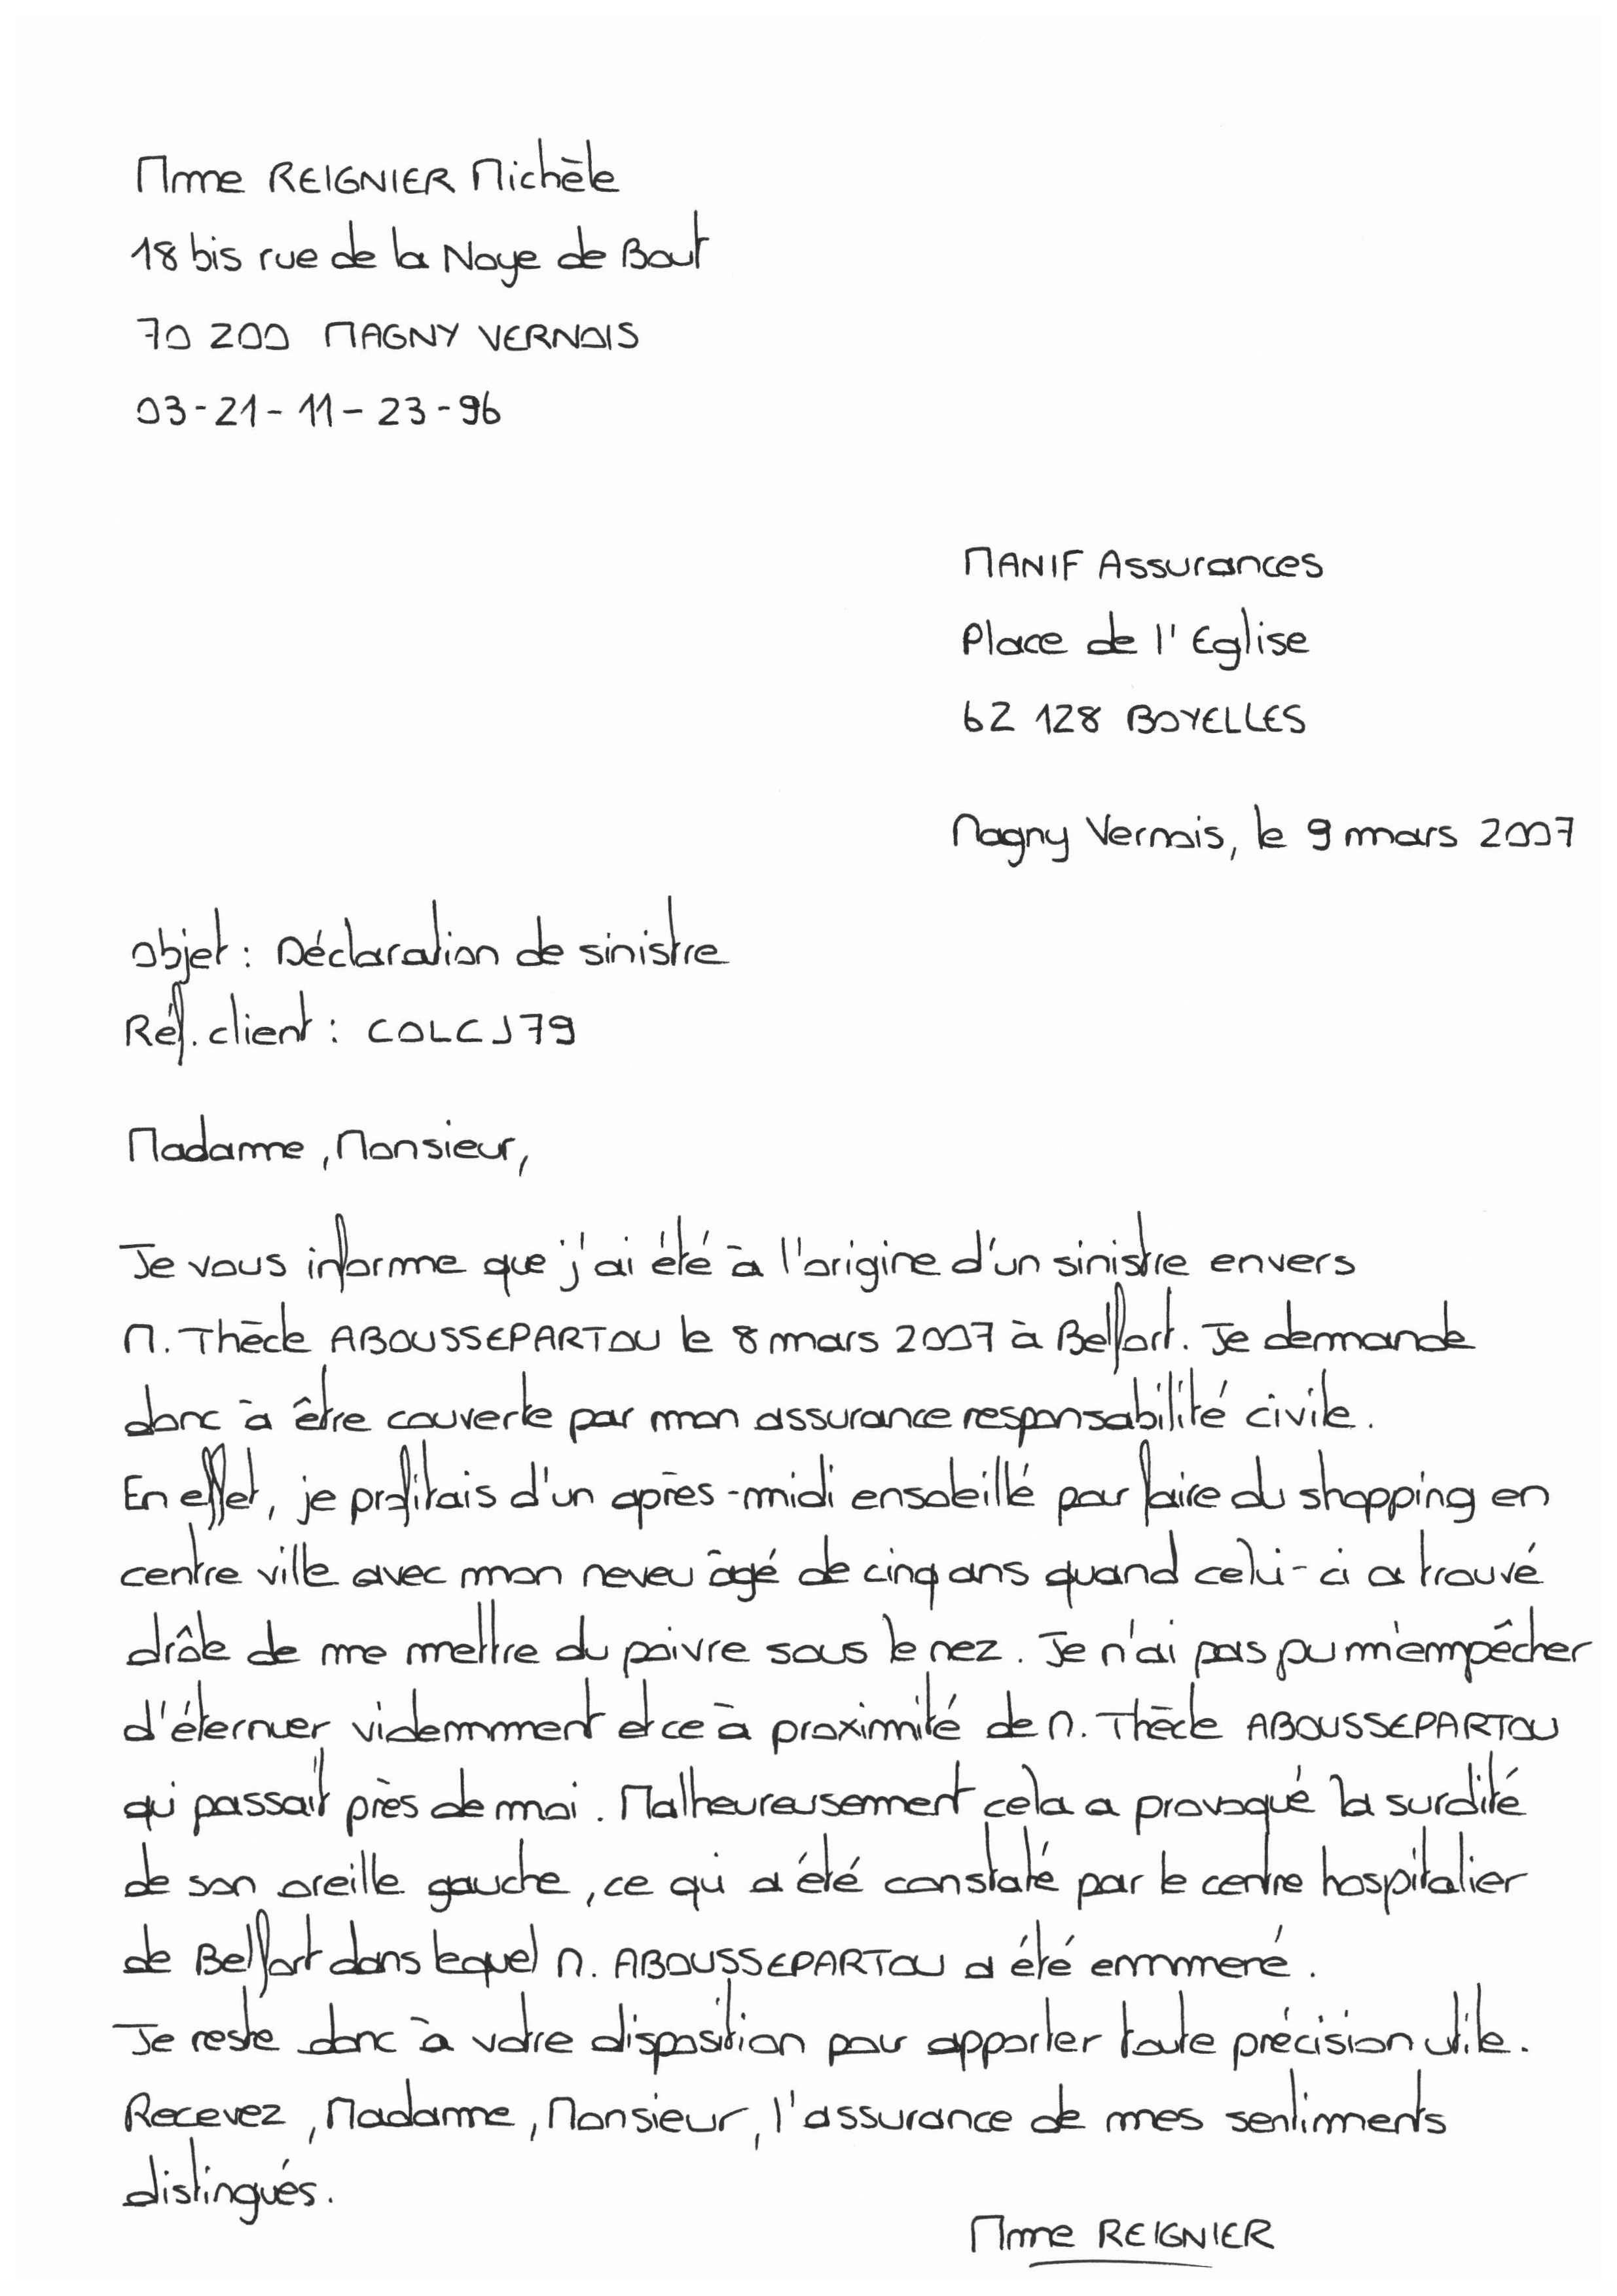 Mme REIGNIER Michèle
18 bis rue de la Noye de Bout
70 200 MAGNY VERNOIS
03-21-11-23-96
MANIF Assurances
Place de l'Eglise
62 128 BOYELLES
Magny Vernois, le 9 mars 2007
Objet : Déclaration de sinistre
Réf. client : COLCJ79
Madame, Monsieur,
Je vous informe que j'ai été à l'origine d'un sinistre envers
M. Thècle ABOUSSEPARTOU le 8 mars 2007 à Belfort. Je demande
donc à être couverte par mon assurance responsabilité civile.
En effet, je profitais d'un après-midi ensoleillé pour faire du shopping en
centre ville avec mon neveu âgé de cinq ans quand celui-ci a trouvé
drôle de me mettre du poivre sous le nez. Je n'ai pas pu m'empêcher
d'éternuer videmment et ce à proximité de M. Thècle ABOUSSEPARTOU
qui passait près de moi. Malheureusement cela a provoqué la surdité
de son oreille gauche, ce qui a été constaté par le centre hospitalier
de Belfort dans lequel M. ABOUSSEPARTOU a été emmené.
Je reste donc à votre disposition pour apporter toute précision utile.
Recevez, Madame, Monsieur, l'assurance de mes sentiments
distingués.
Mme REIGNIER